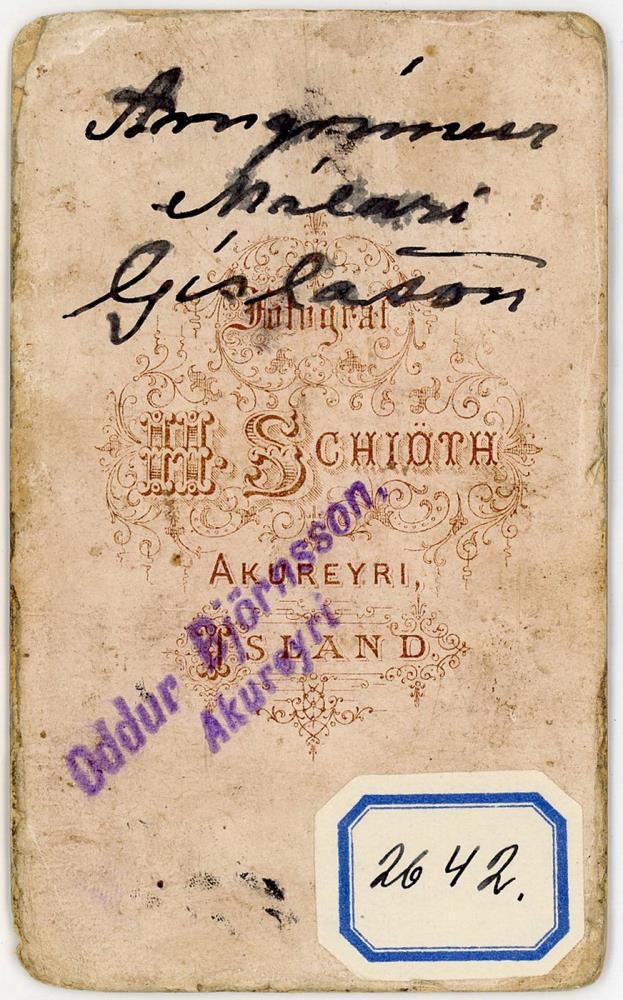 Arngrímur
Málari
Gíslason
Fotograf
H. SCHIÖTH
AKUREYRI,
ISLAND.
Oddur Björnsson.
Akureyri
2642.